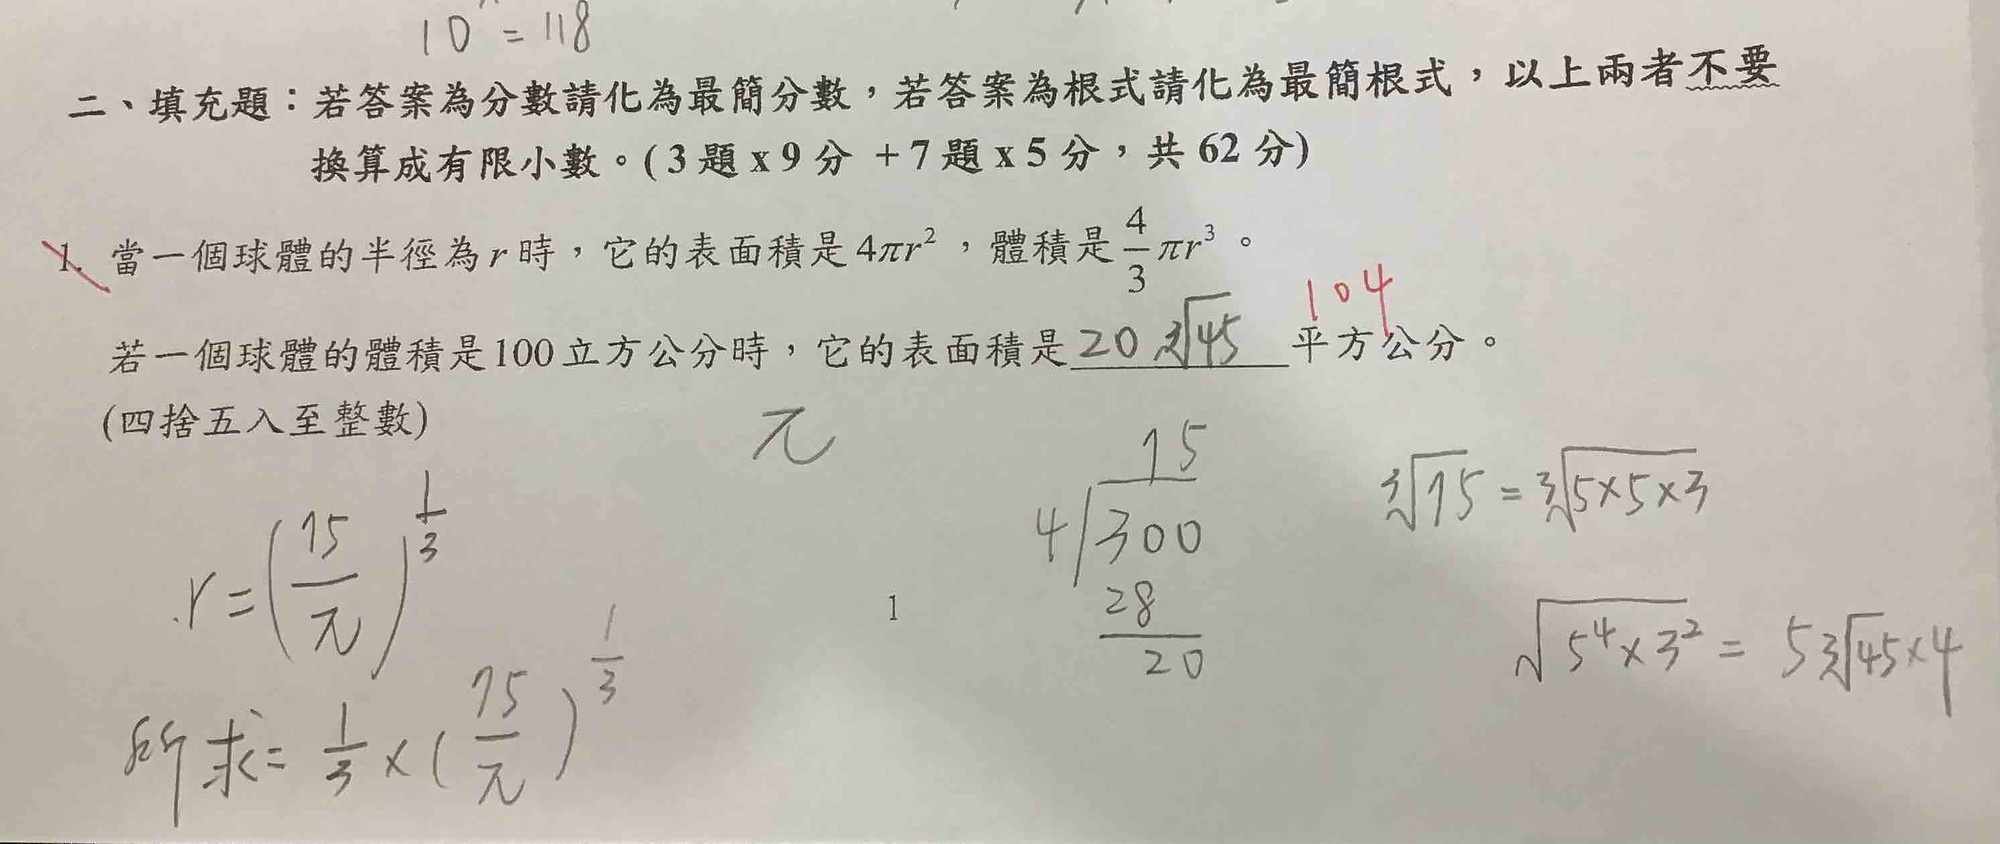 10 = 118
二、填充題：若答案為分數請化為最簡分數，若答案為根式請化為最簡根式，以上兩者不要
換算成有限小數。(3題x9分 +7題x5分，共62分)
1. 當一個球體的半徑為r時，它的表面積是4πr²，體積是4/3πr³。
104
若一個球體的體積是100立方公分時，它的表面積是20∛45平方公分。
(四捨五入至整數)
π
r=(75/π)^(1/3)
75
4)300
28
20
∛75=∛5×5×3
√5⁴×3² = 5∛45×4
1
所求= 1/3×(75/π)^(1/3)